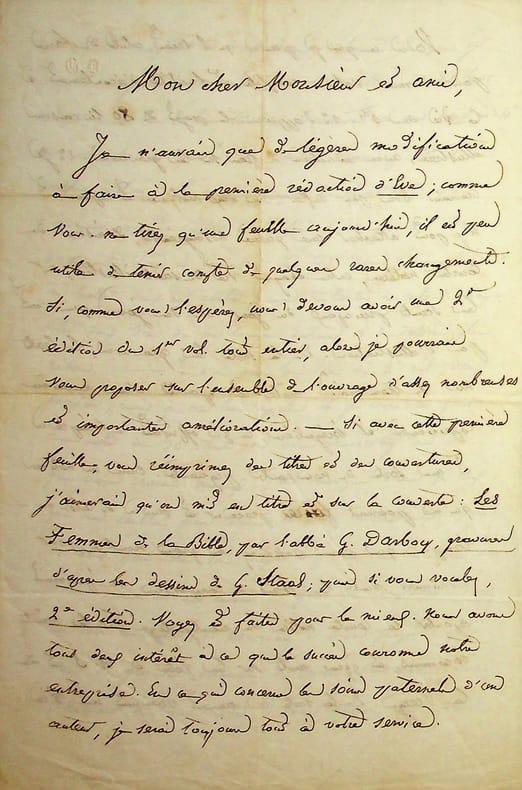 Mon cher Monsieur et ami,
Je n'aurai que de légères modifications
à faire à la première rédaction d'Eve ; comme
vous ne tirez qu'une feuille aujourd'hui, il est peu
utile de tenir compte de quelques rares changements.
Si, comme vous l'espérez, nous devons avoir une 2e
édition du 1er vol. tout entier, alors je pourrai
vous proposer sur l'ensemble de l'ouvrage d'assez nombreuses
et importantes améliorations. — Si avec cette première
feuille, vous réimprimez des titres et des couvertures,
j'aimerais qu'on mît en titre et sur la couverte : Les
Femmes de la Bible, par l'abbé G. Darboy, gravures
d'après les dessins de G. Staal ; puis si vous voulez,
2e édition. Voyez et faites pour le mieux. Nous avons
tous deux intérêt à ce que le succès couronne notre
entreprise. En ce qui concerne les soins paternels d'un
auteur, je serai toujours tout à votre service.